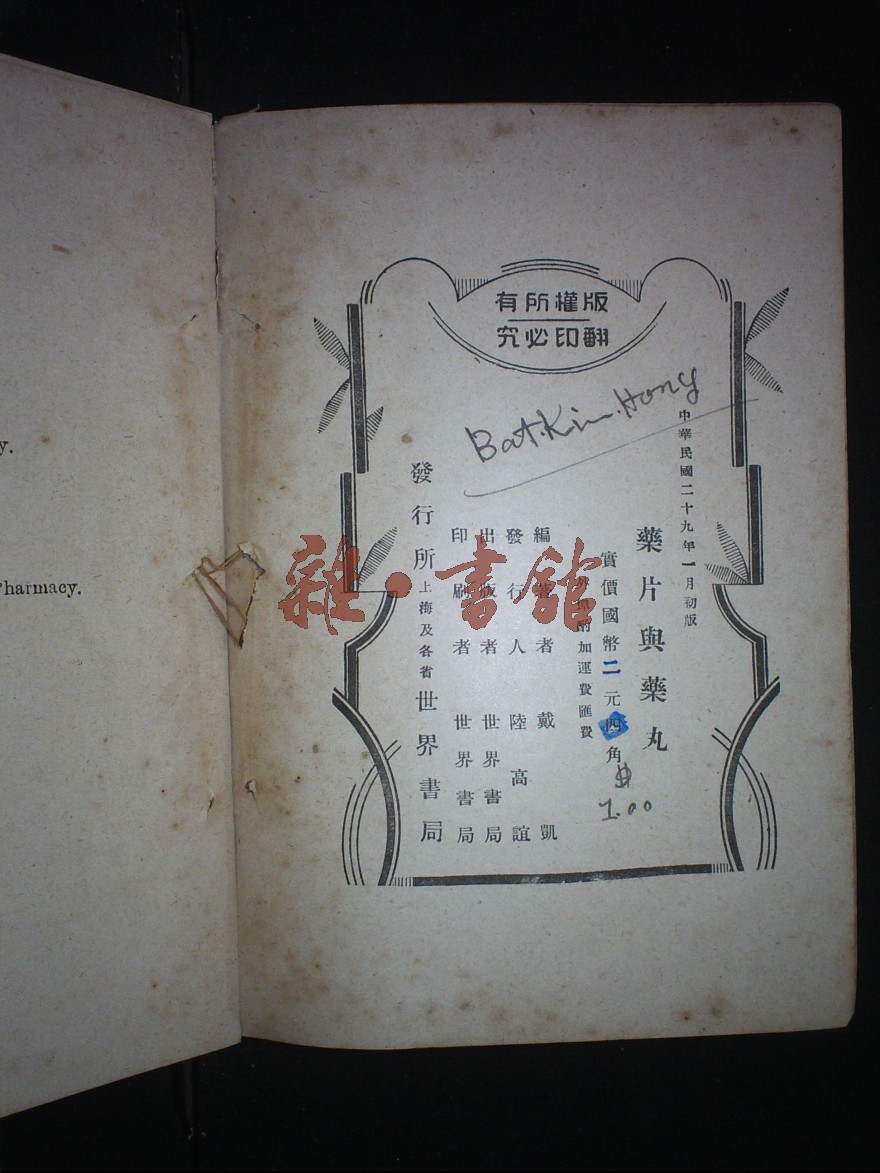 版權所有
翻印必究
Bat.Kim.Hong
中華民國二十九年一月初版
藥片與藥丸
實價國幣二元四角
$
1.00
外埠酌加運費匯費
編著者 戴凱
發行人 陸高誼
出版者 世界書局
印刷者 世界書局
發行所 上海及各省 世界書局
雜·書館
y.
Pharmacy.